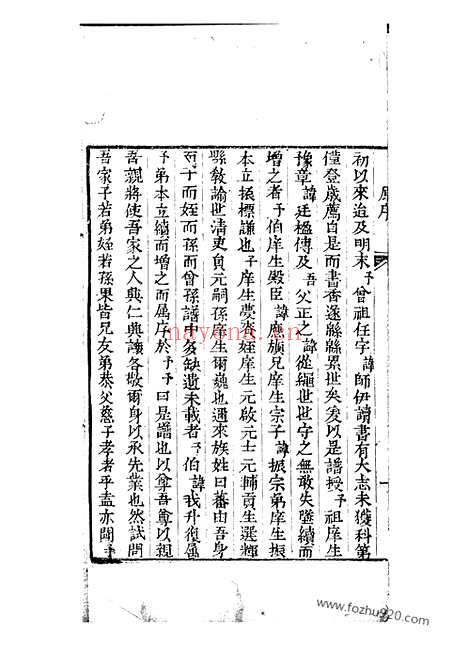 初以來迨及明末予曾祖任字諱師伊讀書有大志未獲科第
僅登歲薦自是而書香遂緜緜累世矣爰以是譜授予祖庠生
豫章諱廷楹傳及吾父正之諱從繩世世守之無敢失墜續而
增之者予伯庠生殿臣諱應旂兄庠生宗子諱振宗弟庠生振
本立振標謙也予庠生夢熊姪庠生元啟元士元輔貢生選輝
縣敎諭世清吏員元嗣孫庠生爾魏也通來族姓日蕃由吾身
而子而姪而孫而曾孫譜中多缺遺未載者予伯諱我升復屬
予弟本立續而增之而属序於予予曰是譜也以尊吾尊以親
吾親將使吾家之人興仁興讓各敬爾身以承先業也然試問
吾家子若弟姪若孫果皆兄友弟恭父慈子孝者乎盍亦聞
序
一
nayona.cn
www.fozhu920.com